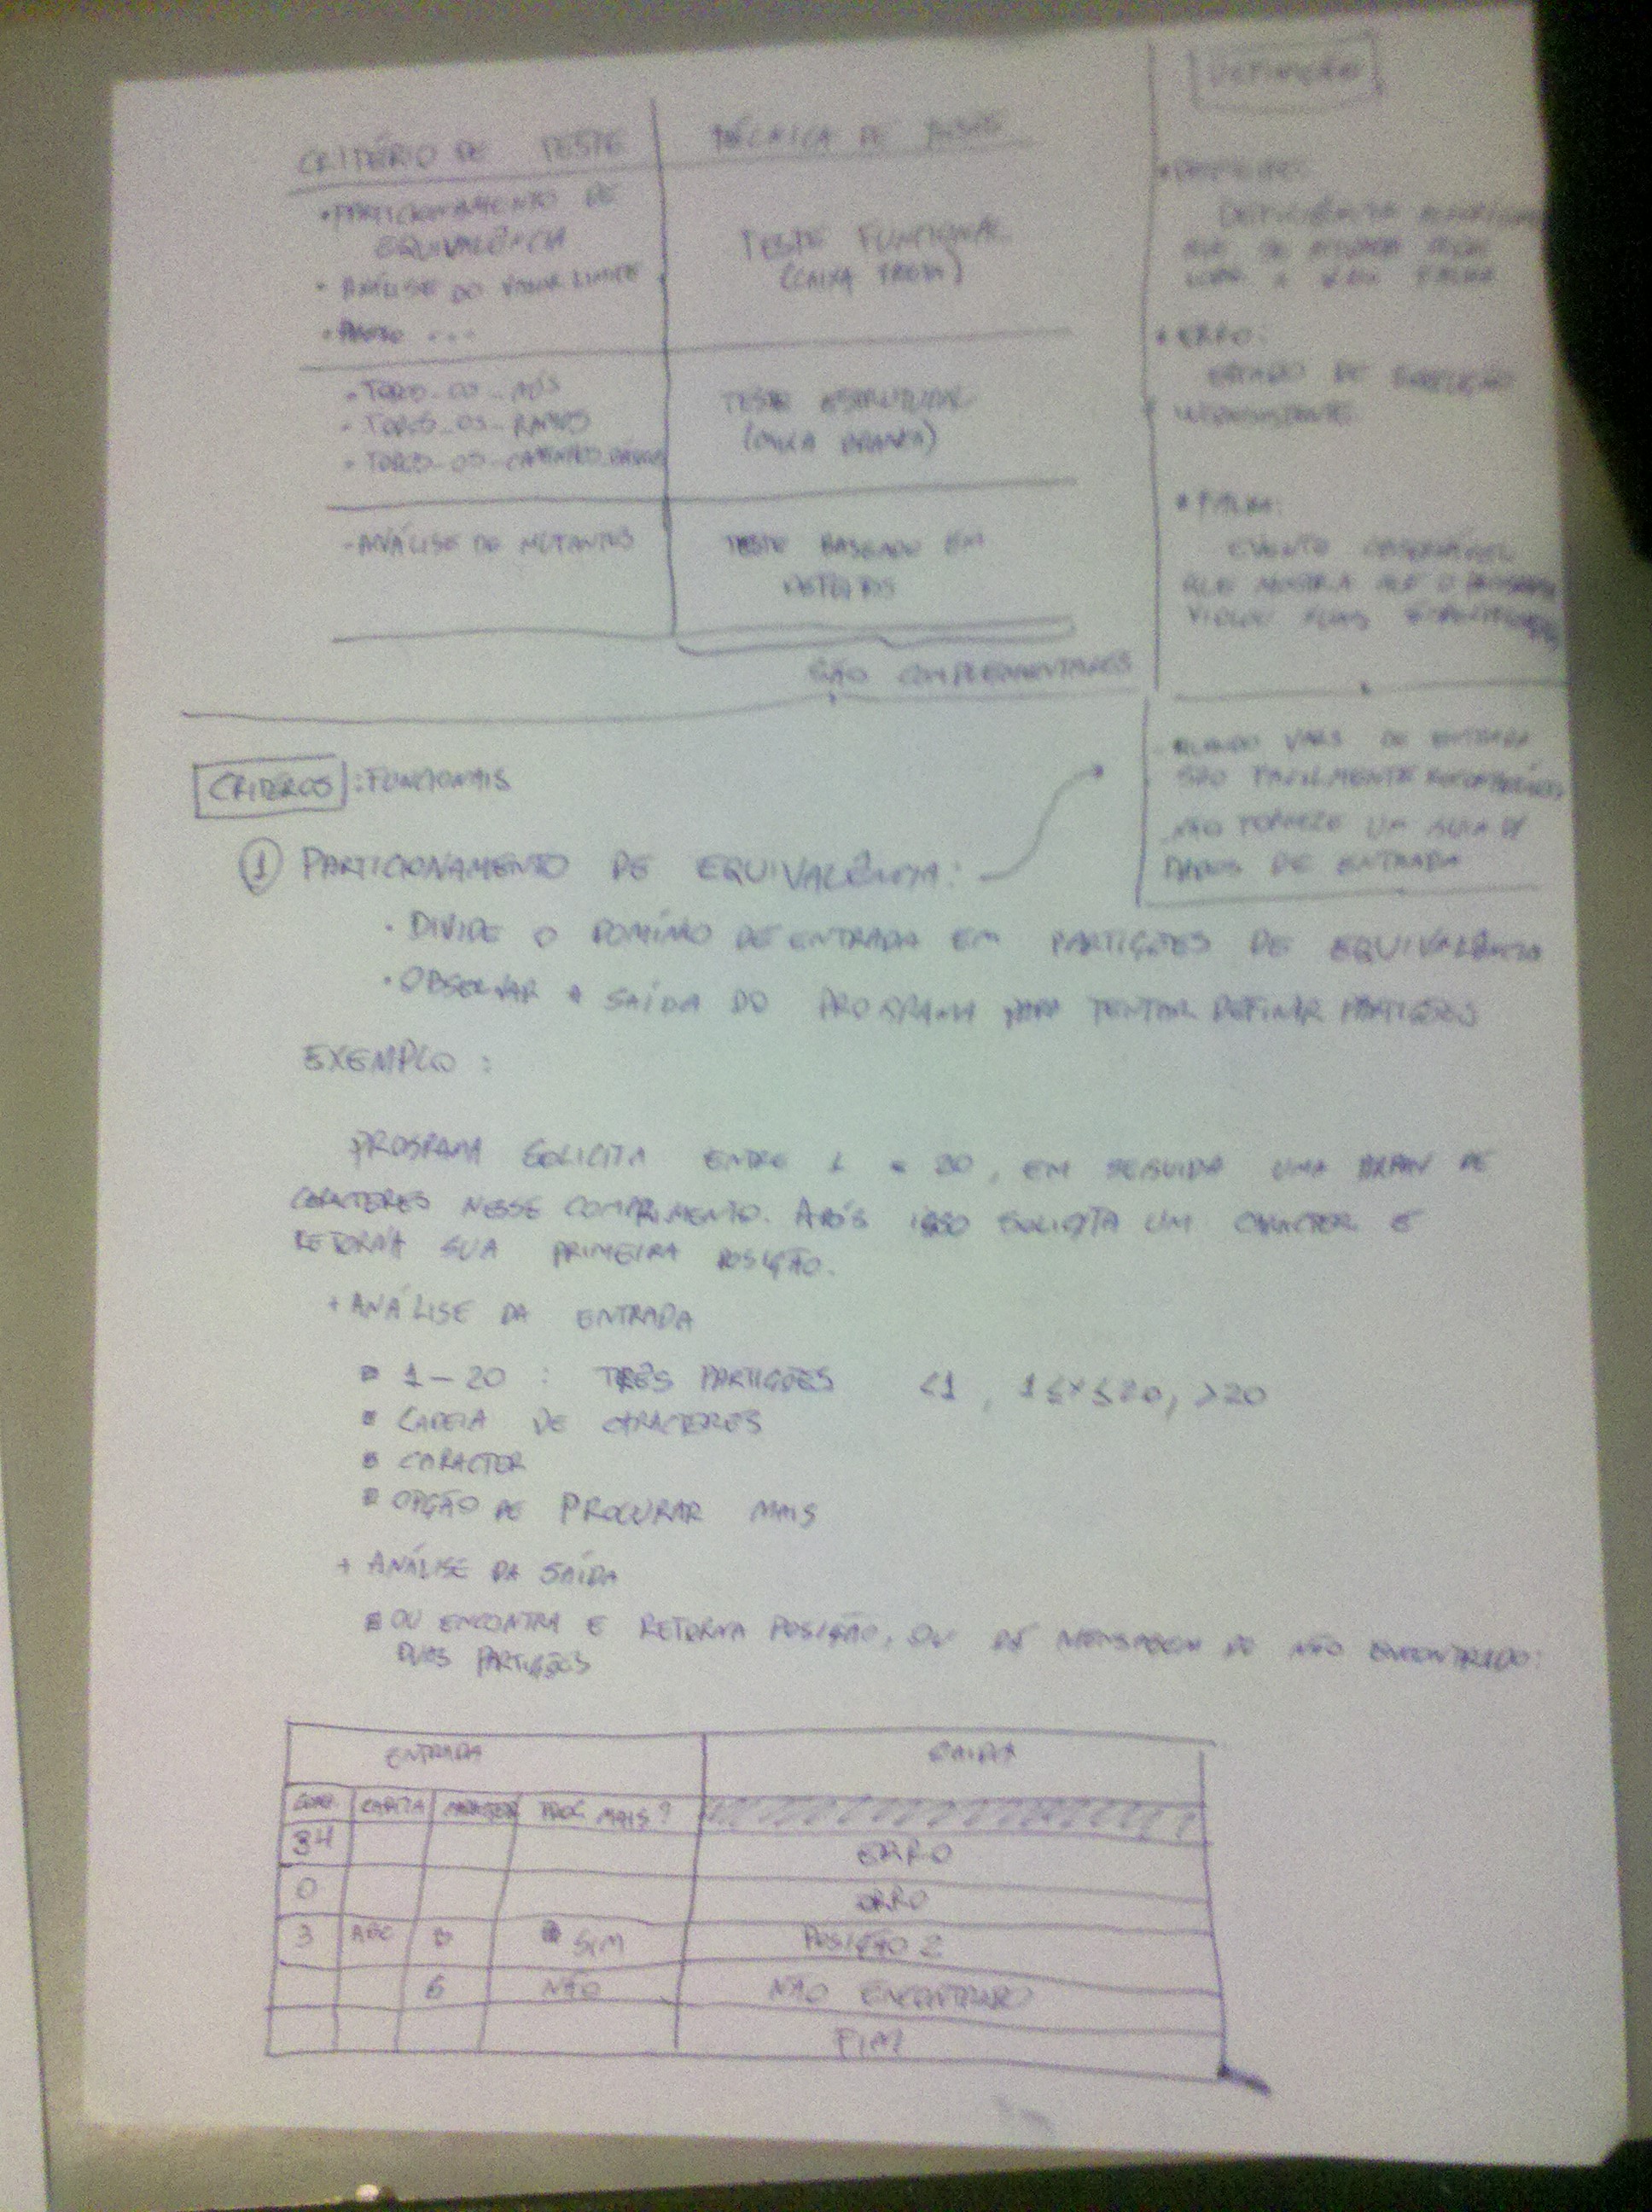 CRITÉRIO DE TESTE
TÉCNICA DE TESTE
• PARTICIONAMENTO DE
EQUIVALÊNCIA
• ANÁLISE DO VALOR LIMITE
TESTE FUNCIONAL
(CAIXA PRETA)
• TODOS-OS-NÓS
• TODOS-OS-RAMOS
• TODOS-OS-
TESTE ESTRUTURAL
(CAIXA BRANCA)
- ANÁLISE DE MUTANTES
TESTE BASEADO EM
DEFEITOS
SÃO COMPLEMENTARES
DEFINIÇÃO
• ERRO:
ESTADO DE EXECUÇÃO
INCONSISTENTE
• FALHA:
EVENTO OBSERVÁVEL
QUE MOSTRA QUE O PROGRAMA
VIOLOU SUAS
CRITEROS : FUNCIONAIS
QUANDO VARS DE ENTRADA
SÃO FACILMENTE
NÃO FORNECE UM GUIA P/
DADOS DE ENTRADA
① PARTICIONAMENTO DE EQUIVALÊNCIA:
• DIVIDE O DOMÍNIO DE ENTRADA EM PARTIÇÕES DE EQUIVALÊNCIA
• OBSERVAR A SAÍDA DO PROGRAMA PARA TENTAR DEFINIR PARTIÇÕES
EXEMPLO :
PROGRAMA SOLICITA ENTRE 1 e 20, EM SEGUIDA UMA ARRAY DE
CARACTERES NESSE COMPRIMENTO. APÓS ISSO SOLICITA UM CARACTER E
RETORNA SUA PRIMEIRA POSIÇÃO.
+ ANÁLISE DA ENTRADA
▪ 1 – 20 : TRÊS PARTIÇÕES <1, 1≤x≤20, >20
▪ CADEIA DE CARACTERES
▪ CARACTER
▪ OPÇÃO DE PROCURAR MAIS
+ ANÁLISE DA SAÍDA
▪ OU ENCONTRA E RETORNA POSIÇÃO, OU DÁ MENSAGEM DE NÃO ENCONTRADO:
DUAS PARTIÇÕES
ENTRADA SAIDA
COMP. CADEIA CARACTER PROC MAIS?
34 ERRO
0 ERRO
3 ABC B SIM POSIÇÃO 2
6 NÃO NÃO ENCONTRADO
FIM